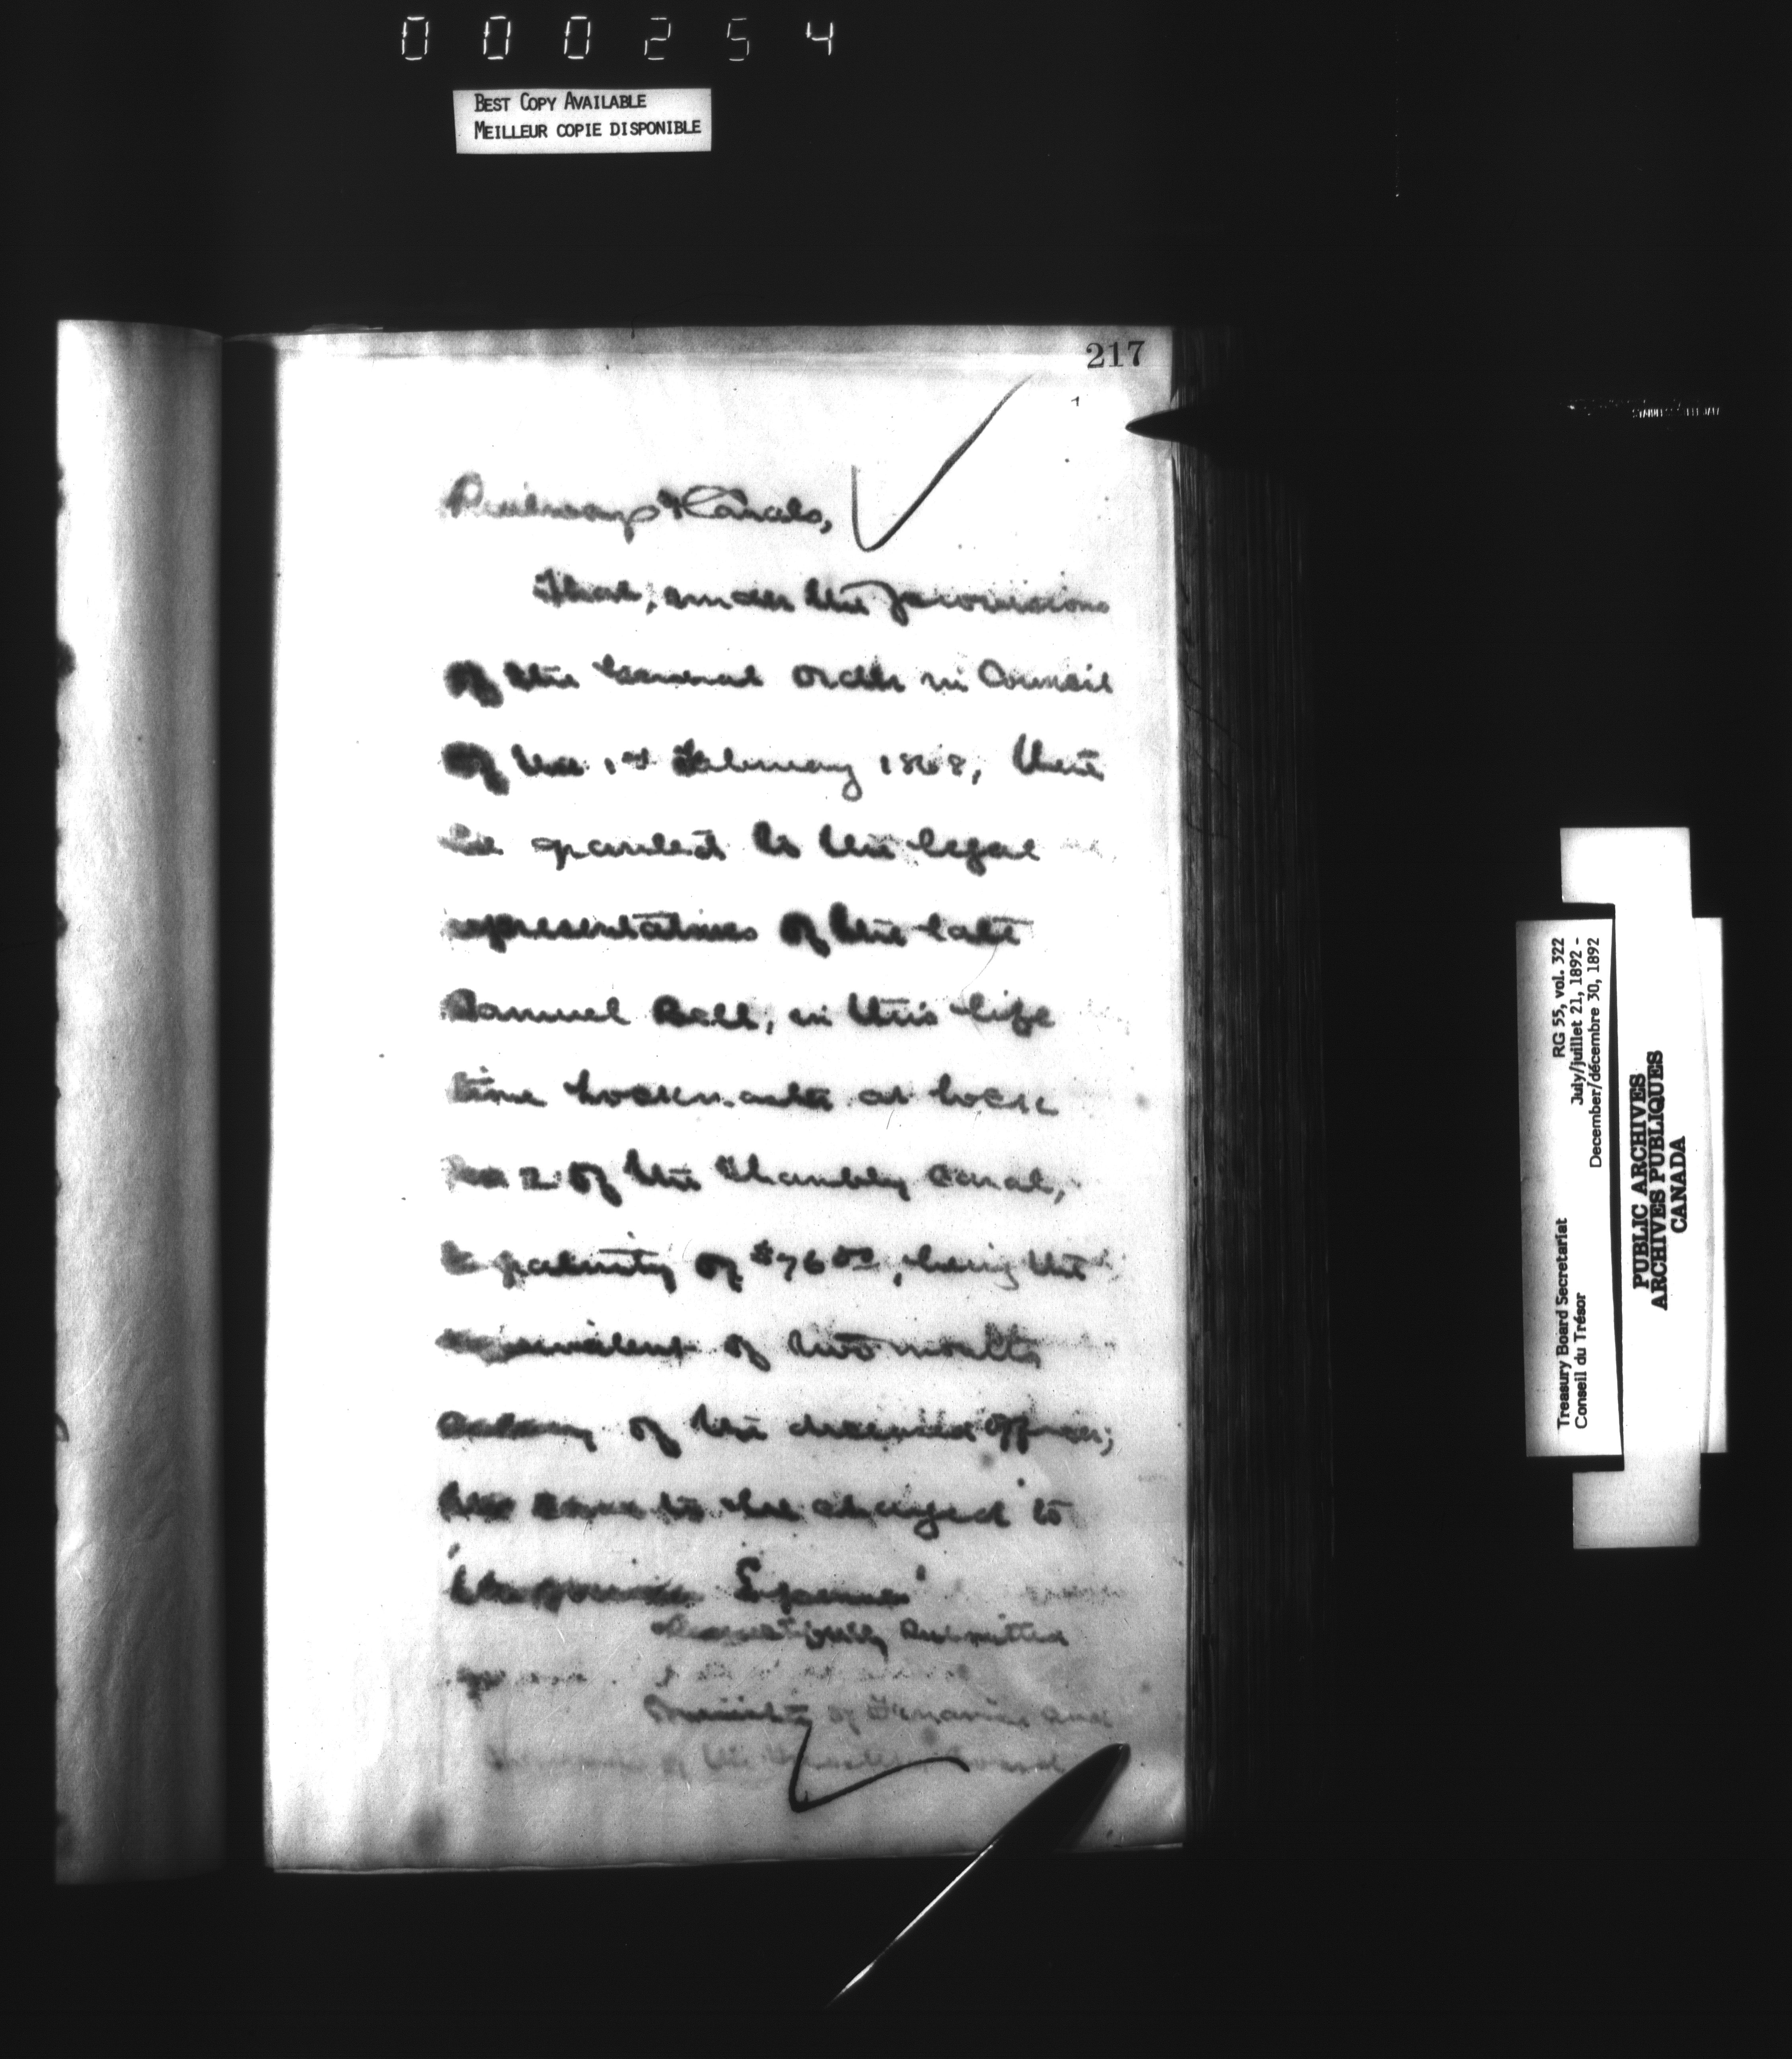 000254
BEST COPY AVAILABLE
MEILLEUR COPIE DISPONIBLE
217
Railways & Canals,
That, under the provisions
of the General Order in Council
of the 1st February 1868, there
be granted to the legal
representatives of the late
Samuel Bell, in this life
time Lockmaster at Lock
No 2 of the Chambly Canal,
a gratuity of $76 00, being the
equivalent of two months
salary of the deceased officer;
the same to be charged to
'Unforeseen Expenses'
Respectfully submitted
Minister of Finance and
of the Board
Treasury Board Secretariat RG 55, vol. 322
Conseil du Trésor July/juillet 21, 1892 -
December/décembre 30, 1892
PUBLIC ARCHIVES
ARCHIVES PUBLIQUES
CANADA